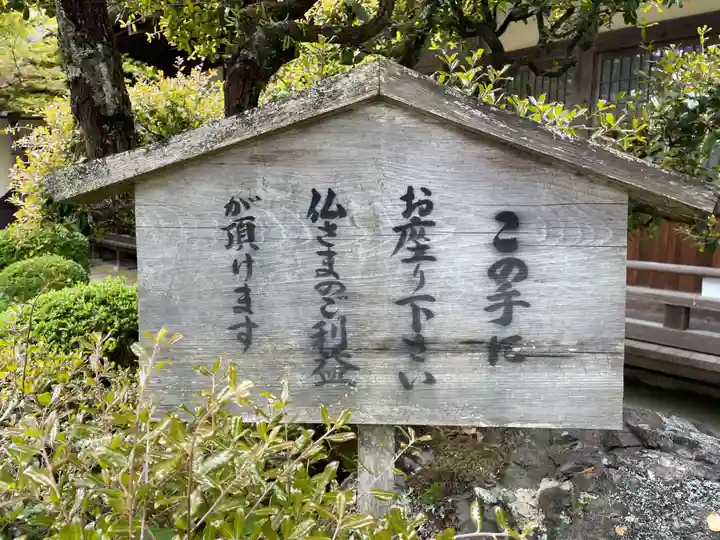 この手に
お座り下さい
仏さまのご利益
が頂けます